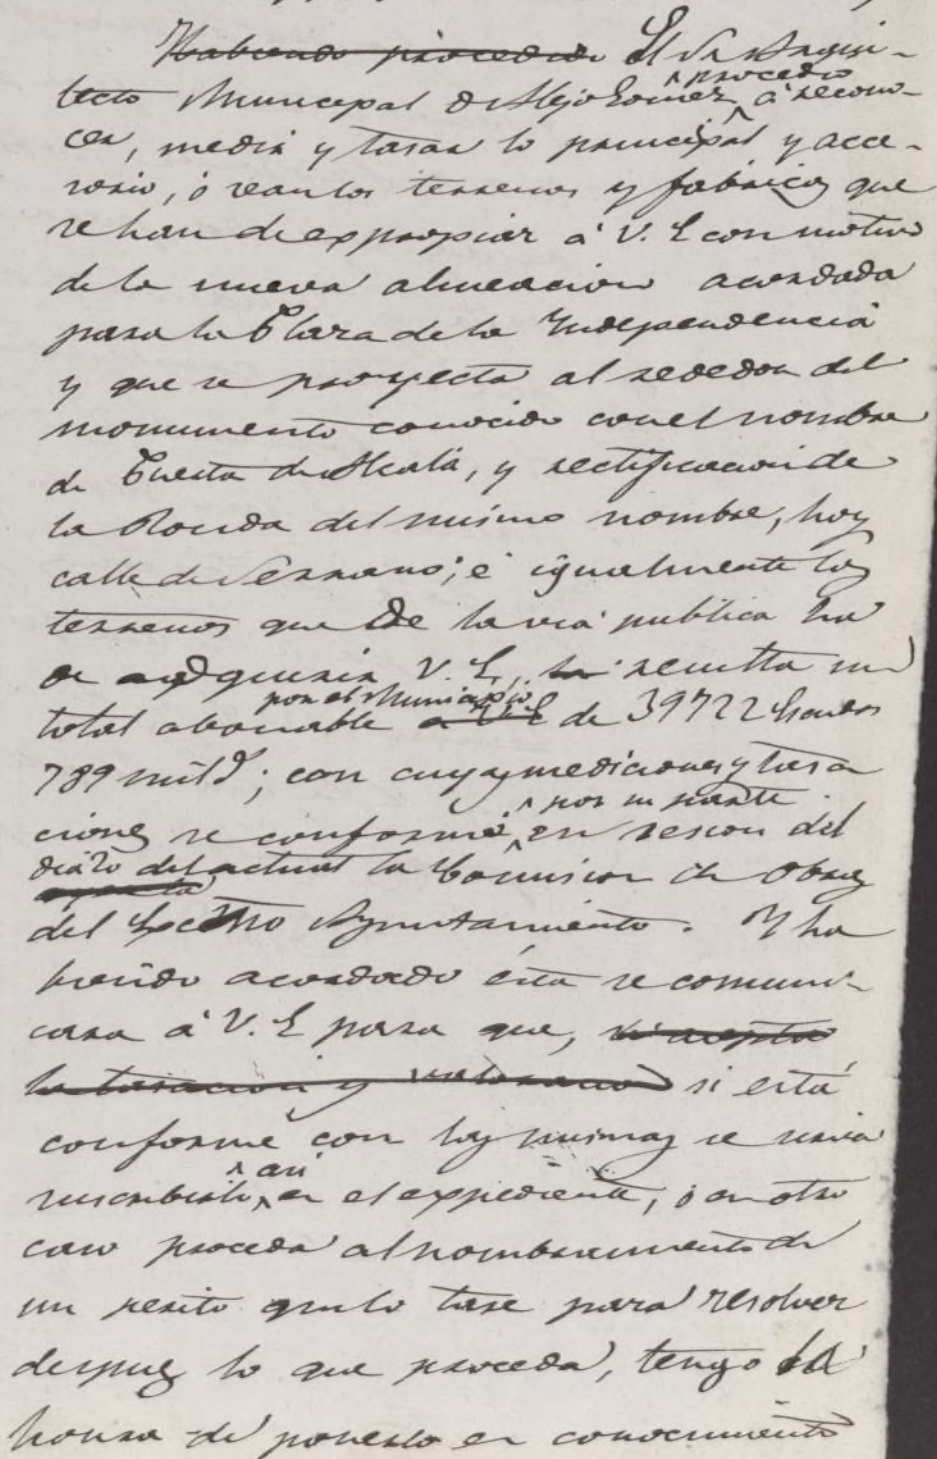 Habiendo procedido El Sr Arqui-
tecto Municipal D. Alejo Gomez ^procedio á recono-
cer, medir y tasar lo principal y acce-
sorio, ó sean los terrenos y fabricas que
se han de expropiar á V. E con motivo
de la nueva alineacion acordada
para la Plaza de la Independencia
y que se proyecta al rededor del
monumento conocido con el nombre
de Puerta de Alcalá, y rectificacion de
la Ronda del mismo nombre, hoy
calle de Serrano; é igualmente los
terrenos que de la via publica ha
de adquirir V. E., resulta un
total abonable por el Municipio de 39722 Escudos
789 mils; con cuyas mediciones y tasa
ciones se conformó, ^por su parte en sesion del
dia 20 del actual la Comision de Obras
del Excmo Ayuntamiento. Y ha
biendo acordado esta se comuni-
cara á V. E para que, si acepta
la tasacion y valoracion si está
conforme con las mismas se sirva
suscribirlo ^asi en el expediente, ó en otro
caso proceda al nombramiento de
un perito que lo tase para resolver
despues lo que proceda, tengo la
honra de ponerlo en conocimiento